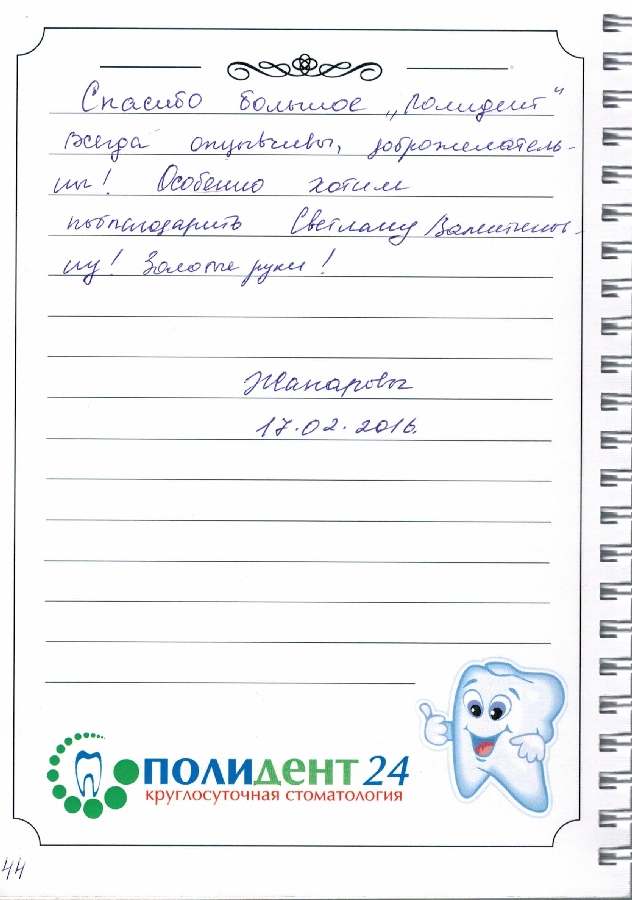 Спасибо большое „Полидент"
Всегда отзывчивы, доброжелатель-
ны! Особенно хотим
поблагодарить Светлану Валентинов-
ну! Золотые руки!
Жапаровы
17.02.2016.
ПОЛИДЕНТ 24
круглосуточная стоматология
44